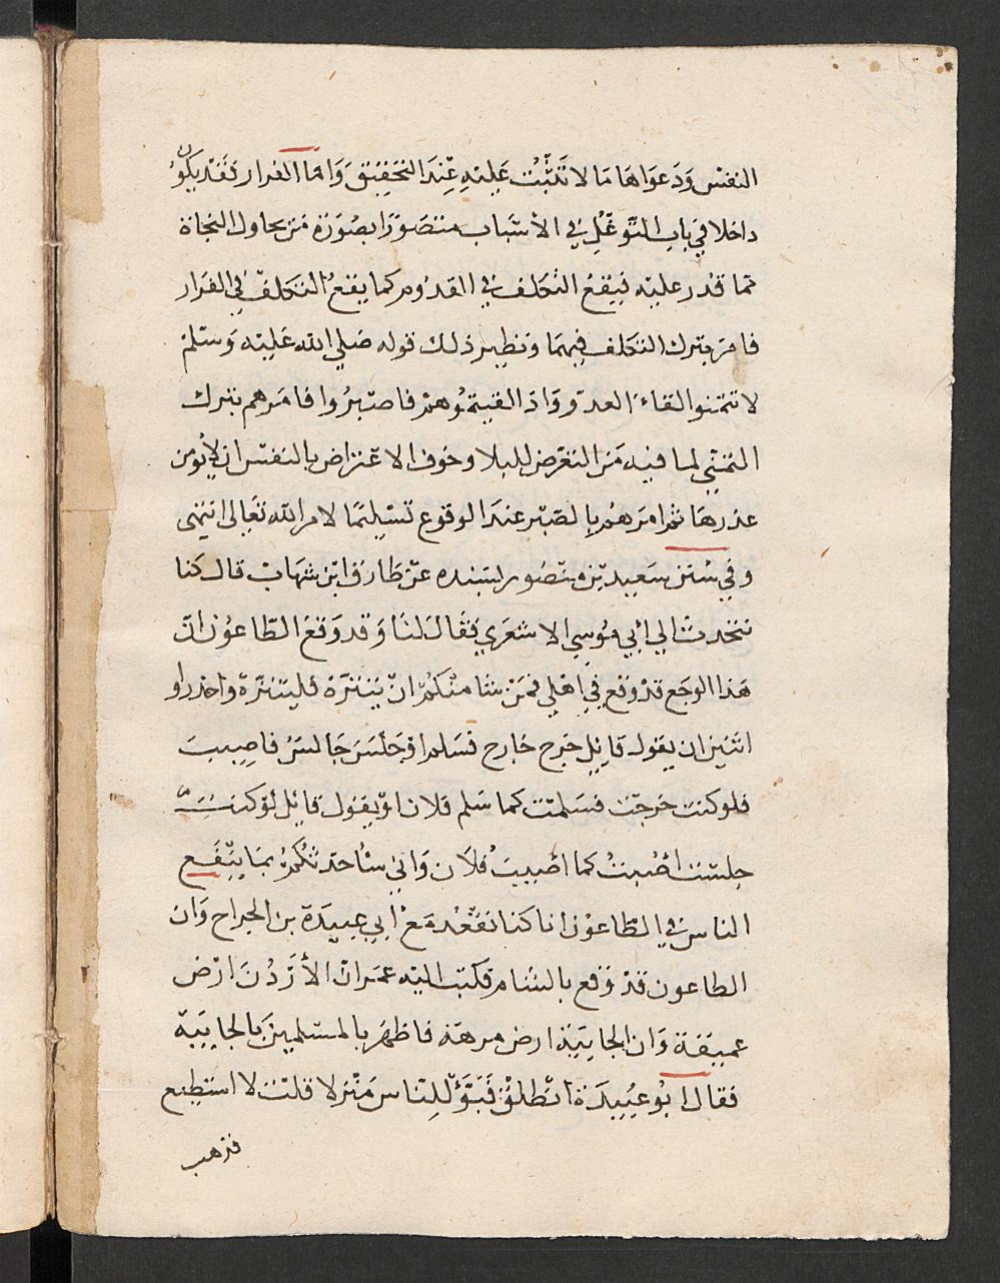 النفس ودعواها ما لا تثبت عليه عند التحقيق واما الفرار فقد يكون
داخلا في باب التوغل في الاسباب متصورا بصورة من يحاول النجاة
مما قدر عليه فيقع التكلف في القدوم كما يقع التكلف في الفرار
فامر بترك التكلف فيهما ونظير ذلك قوله صلي الله عليه وسلم
لا تتمنوا لقاء العدو واذا لقيتموهم فاصبروا فامرهم بترك
التمني لما فيه من التعرض للبلا وخوف الاعتراض بالنفس اذ لا يومن
غدرها ثم امرهم بالصبر عند الوقوع تسليما لامر الله تعالى انتهى
وفي سنن سعيد بن منصور بسنده عن طارق ابن شهاب قال كنا
نتحدث الي ابي موسي الاشعري فقال لنا وقد وقع الطاعون ان
هذا الوجع قد وقع في اهلي فمن شا منكم ان يتنزه فليتنزه واحذروا
اثنين ان يقول قايل خرج خارج فسلم او جلس جالس فاصيب
فلو كنت خرجت فسلمت كما سلم فلان او يقول قايل لو كنت
جلست اصبت كما اصيب فلان واني ساحدثكم بما ينفع
الناس في الطاعون انا كنا نقعد مع ابي عبيدة بن الجراح وان
الطاعون قد وقع بالشام فكتب اليه عمر ان الأردن ارض
عميقة وان الجابية ارض مرهة فاظهر بالمسلمين بالجابية
فقال ابو عبيدة انطلق فبوئ للناس منزلا قلت لا استطيع
فذهب